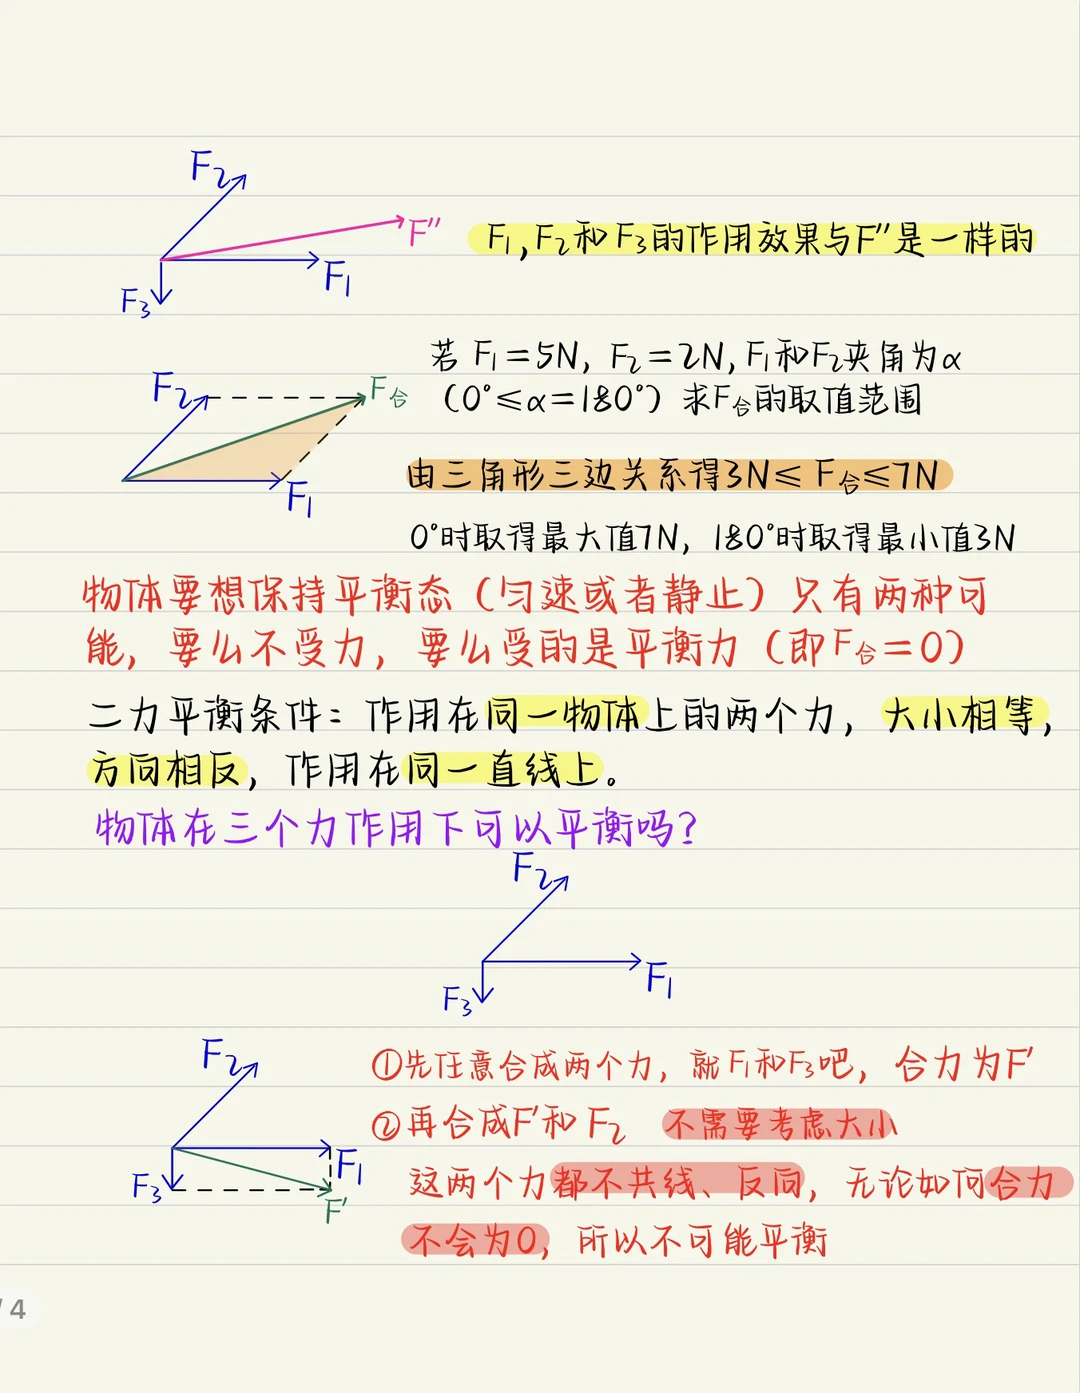 F₂
F″
F₁
F₃
F₁,F₂和F₃的作用效果与F″是一样的
若 F₁=5N, F₂=2N, F₁和F₂夹角为α
(0°≤α=180°) 求F合的取值范围
F₂
F合
F₁
由三角形三边关系得3N≤F合≤7N
0°时取得最大值7N, 180°时取得最小值3N
物体要想保持平衡态（匀速或者静止）只有两种可
能，要么不受力，要么受的是平衡力（即F合=0）
二力平衡条件：作用在同一物体上的两个力，大小相等，
方向相反，作用在同一直线上。
物体在三个力作用下可以平衡吗？
F₂
F₁
F₃
F₂
F₁
F₃
F′
①先任意合成两个力，就F₁和F₃吧，合力为F′
②再合成F′和F₂ 不需要考虑大小
这两个力都不共线、反向，无论如何合力
不会为0，所以不可能平衡
/ 4